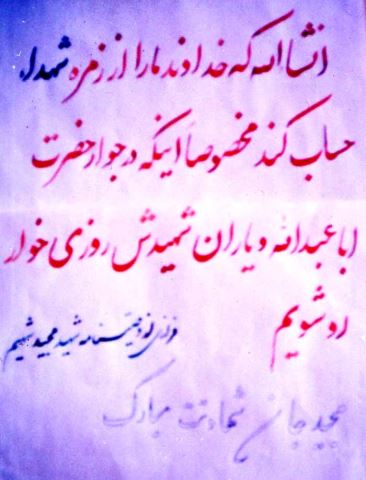 انشاالله که خداوند ما را از زمره شهداء
حساب کند مخصوصاً اینکه در جوار حضرت
اباعبدالله و یاران شهیدش روزی خوار
او شویم
فرازی از وصیتنامه شهید مجید شیم
مجید جان شهادتت مبارک